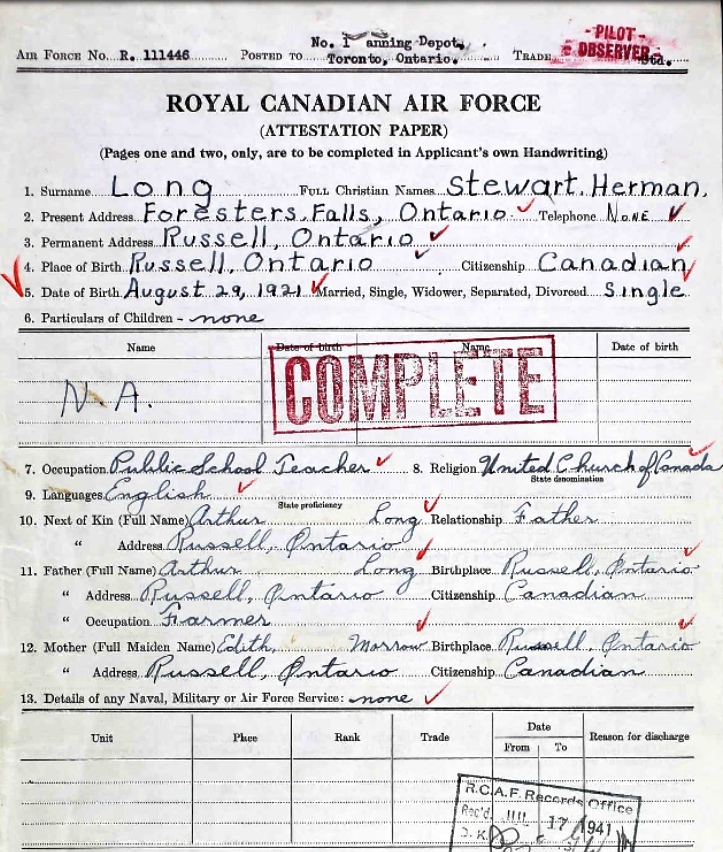 - PILOT -
OBSERVER
AIR FORCE No. R. 111446 POSTED TO No. 1 anning Depot, Toronto, Ontario. TRADE Std.
ROYAL CANADIAN AIR FORCE
(ATTESTATION PAPER)
(Pages one and two, only, are to be completed in Applicant's own Handwriting)
1. Surname Long FULL Christian Names Stewart Herman,
2. Present Address Foresters Falls, Ontario Telephone None
3. Permanent Address Russell, Ontario
4. Place of Birth Russell, Ontario Citizenship Canadian
5. Date of Birth August 29, 1921 Married, Single, Widower, Separated, Divorced Single
6. Particulars of Children - none
Name Date of birth Name Date of birth
COMPLETE
N. A.
7. Occupation Public School Teacher 8. Religion United Church of Canada
State denomination
9. Languages English
State proficiency
10. Next of Kin (Full Name) Arthur Long Relationship Father
" Address Russell, Ontario
11. Father (Full Name) Arthur Long Birthplace Russell, Ontario
" Address Russell, Ontario Citizenship Canadian
" Occupation Farmer
12. Mother (Full Maiden Name) Edith Morrow Birthplace Russell, Ontario
" Address Russell, Ontario Citizenship Canadian
13. Details of any Naval, Military or Air Force Service: none
Unit Place Rank Trade Date Reason for discharge
From To
R.C.A.F. Records Office
Rec'd 17 1941